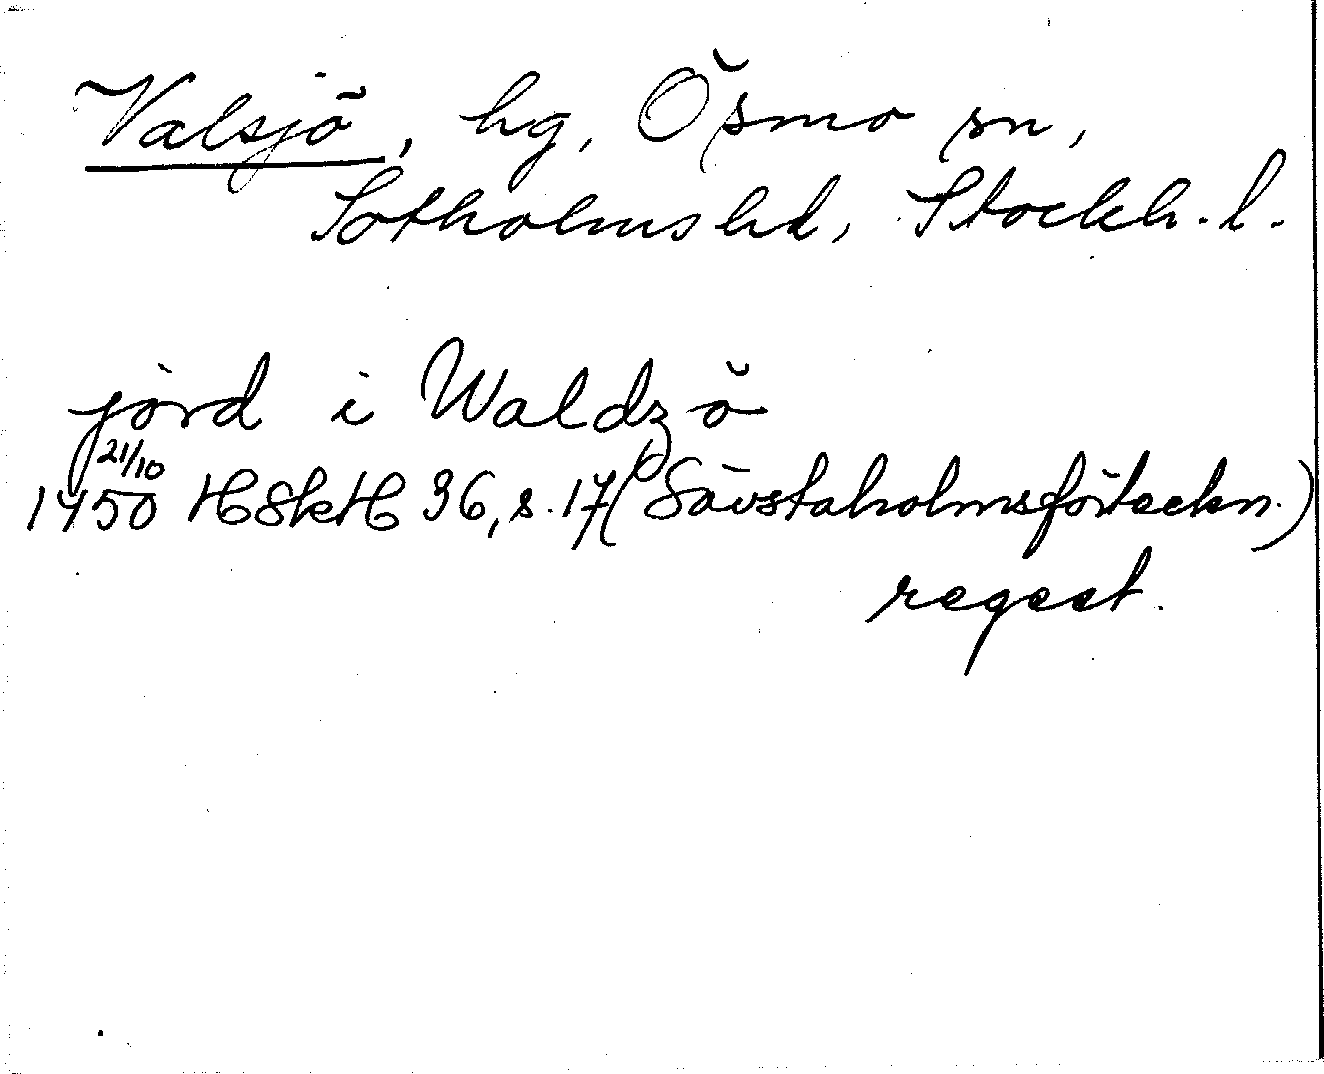 Valsjö, hg, Ösmo sn,
Sotholms hd, Stockh. l.
jord i Waldzö
1450 21/10 HSkH 36, s. 17 (Sävstaholmsförteckn.)
regest.